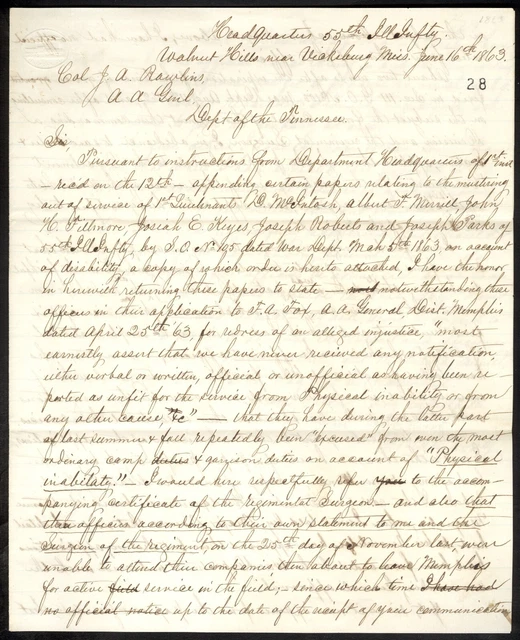 Headquarters 55th Ill Infty.
Walnut Hills near Vicksburg Miss. June 16th 1863.
28
Col J. A. Rawlins,
A A Genl,
Dept of the Tennessee.
Sir
Pursuant to instructions from Department Headquarters of 1st inst
- recd on the 12th - appending certain papers relating to the mustering
out of service of 1st Lieutenants D. McIntosh, Albert F. Merrill John
H. Fillmore, Josiah E. Keyes, Joseph Roberts and Joseph Parks of
55th Ill Infty, by S. O. No 45 dated War Dept. Mar 5th 1863 on account
of disability, a copy of which order is hereto attached, I have the honor
in herewith returning these papers to state - notwithstanding these
officers in their application to F. A. Fox, A. A. General, Dist. Memphis
dated April 25th 63, for redress of an alleged injustice, "most
earnestly assert that we have never recieved any notification,
either verbal or written, official or unofficial as having been re
ported as unfit for the service from Physical inability or from
any other cause, &c" - that they have during the latter part
of last summer & fall repeatedly been "excused" from even the most
ordinary camp duties & garrison duties on account of "Physical
inability." - I would here respectfully refer you to the accom-
panying certificate of the regimental Surgeon - and also that
these officers according to their own statement to me and the
Surgeon of the regiment, on the 25th day of November last, were
unable to attend their companies then about to leave Memphis
for active field service in the field; - since which time I have had
no official notice up to the date of the receipt of your communication